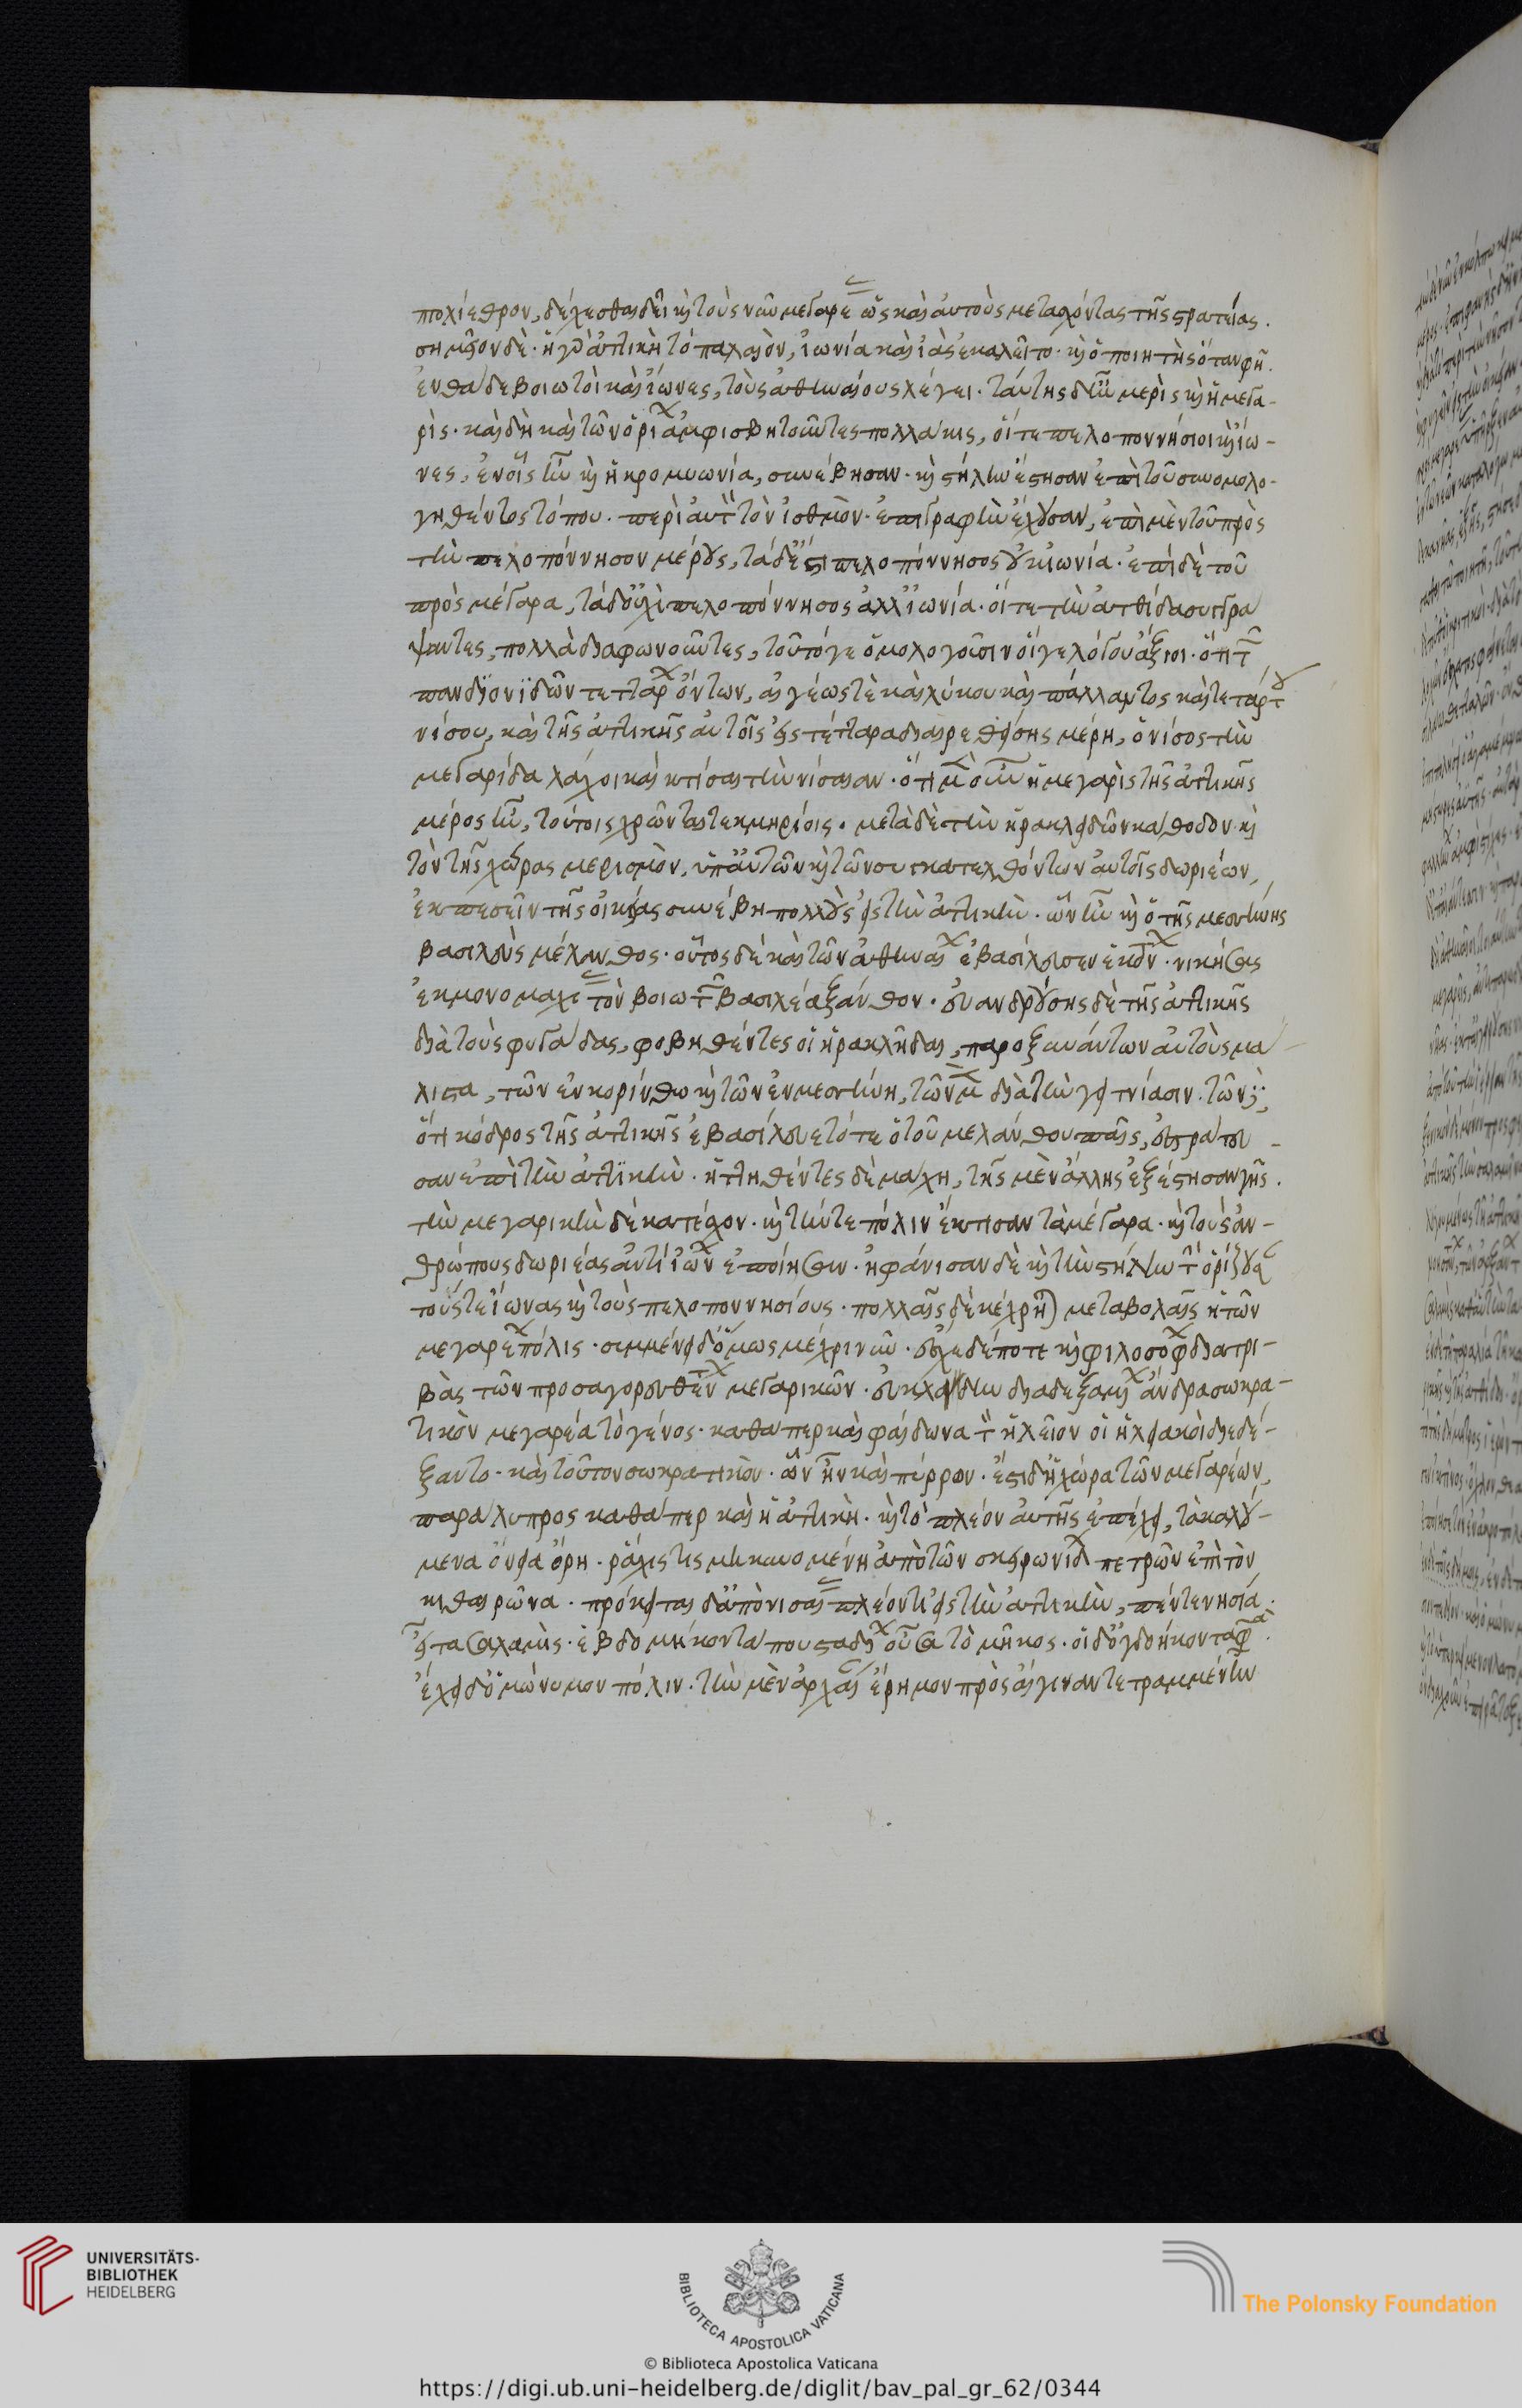 πτολίεθρον, δέχεσθαι δεῖ καὶ τοὺς νῦν μεγαρέας ὡς καὶ αὐτοὺς μετασχόντας τῆς στρατείας.
σημεῖον δὲ· ἡ γὰρ ἀττικὴ τὸ παλαιὸν, ἰωνία καὶ ἰὰς ἐκαλεῖτο· καὶ ὁ ποιητὴς ὅταν φῆ.
ἔνθα δὲ βοιωτοὶ καὶ ἴωνες, τοὺς ἀθηναίους λέγει· ταύτης δ' ἦν μερὶς καὶ ἡ μεγα-
ρὶς· καὶ δὴ καὶ τῶν ὁρίων ἀμφισβητοῦντες πολλάκις, οἵ τε πελοποννήσιοι καὶ ἴω-
νες, ἐν οἷς ἦν καὶ ἡ κρομυωνία, συνέβησαν· καὶ στήλην ἔστησαν ἐπὶ τοῦ συνομολο-
γηθέντος τόπου· περὶ αὐτὸν τὸν ἰσθμὸν· ἐπιγραφὴν ἔχουσαν, ἐπὶ μὲν τοῦ πρὸς
τὴν πελοπόννησον μέρους, τάδ' ἐστὶ πελοπόννησος οὐκ ἰωνία· ἐπὶ δὲ τοῦ
πρὸς μέγαρα, τάδ' οὐχὶ πελοπόννησος ἀλλ' ἰωνία· οἵ τε τὴν ἀτθίδα συγγρά
ψαντες, πολλὰ διαφωνοῦντες, τοῦτό γε ὁμολογοῦσιν οἵ γε λόγου ἄξιοι· ὅτι τῶν
πανδιονιδῶν τεττάρων ὄντων, αἰγέως τὲ καὶ λύκου καὶ πάλλαντος καὶ τετάρτου
νίσου, καὶ τῆς ἀττικῆς αὐτοῖς εἰς τέτταρα διαιρεθείσης μέρη, ὁ νίσος τὴν
μεγαρίδα λάχοι καὶ κτίσαι τὴν νίσαιαν· ὅτι μὲν οὖν ἡ μεγαρὶς τῆς ἀττικῆς
μέρος ἦν, τούτοις χρῶνται τεκμηρίοις. μετὰ δὲ τὴν ἡρακλειδῶν κάθοδον καὶ
τὸν τῆς χώρας μερισμὸν, ὑπ' αὐτῶν καὶ τῶν συγκατελθόντων αὐτοῖς δωριέων,
ἐκπεσεῖν τῆς οἰκείας συνέβη πολλοὺς εἰς τὴν ἀττικὴν· ὧν ἦν καὶ ὁ τῆς μεσσήνης
βασιλεὺς μέλανθος· οὗτος δὲ καὶ τῶν ἀθηναίων ἐβασίλευσεν ἑκόντων· νικήσας
ἐκ μονομαχίας τὸν βοιωτῶν βασιλέα ξάνθον. εὐανδρούσης δὲ τῆς ἀττικῆς
διὰ τοὺς φυγάδας, φοβηθέντες οἱ ἡρακλεῖδαι, παροξυνάντων αὐτοὺς μά
λιστα, τῶν ἐν κορίνθω καὶ τῶν ἐν μεσσήνη, τῶν μὲν διὰ τὴν γειτνίασιν· τῶν δὲ,
ὅτι κόδρος τῆς ἀττικῆς ἐβασίλευε τότε ὁ τοῦ μελάνθου παῖς, ἐστράτευ-
σαν ἐπὶ τὴν ἀττικὴν· ἡττηθέντες δὲ μάχη, τῆς μὲν ἄλλης ἐξέστησαν γῆς.
τὴν μεγαρικὴν δὲ κατέσχον· καὶ τήν τε πόλιν ἔκτισαν τὰ μέγαρα· καὶ τοὺς ἀν-
θρώπους δωριέας ἀντὶ ἰώνων ἐποίησαν· ἠφάνισαν δὲ καὶ τὴν στήλην τὴν ὁρίζουσαν
τούς τε ἴωνας καὶ τοὺς πελοποννησίους· πολλαῖς δὲ κέχρηται μεταβολαῖς ἡ τῶν
μεγαρέων πόλις· συμμένει δ' ὅμως μέχρι νῦν· ἔσχε δέ ποτε καὶ φιλοσόφων διατρι-
βὰς τῶν προσαγορευθέντων μεγαρικῶν· εὐκλείδην διαδεξαμένων ἄνδρα σωκρα-
τικὸν μεγαρέα τὸ γένος· καθάπερ καὶ φαίδωνα τὸν ἠλεῖον οἱ ἠλειακοὶ διεδέ-
ξαντο· καὶ τοῦτον σωκρατικὸν· ὧν ἦν καὶ πύρρων· ἔστι δ' ἡ χώρα τῶν μεγαρέων,
παράλυπρος καθάπερ καὶ ἡ ἀττικὴ· καὶ τὸ πλέον αὐτῆς ἐπέχει, τὰ καλού-
μενα ὄνεια ὄρη· ῥάχις τις μηκυνομένη ἀπὸ τῶν σκειρωνίδων πετρῶν ἐπὶ τὸν
κιθαιρῶνα· πρόκειται δ' ἀπὸ νισαίας πλέοντι εἰς τὴν ἀττικὴν, πέντε νησία.
εἶτα σαλαμὶς· ἑβδομήκοντά που σταδίων οὖσα τὸ μῆκος· οἱ δ' ὀγδοήκοντά φασιν.
ἔχει δ' ὁμώνυμον πόλιν· τὴν μὲν ἀρχαίαν ἔρημον πρὸς αἴγιναν τετραμμένην
UNIVERSITÄTS-
BIBLIOTHEK
HEIDELBERG
BIBLIOTECA APOSTOLICA VATICANA
The Polonsky Foundation
© Biblioteca Apostolica Vaticana
https://digi.ub.uni-heidelberg.de/diglit/bav_pal_gr_62/0344